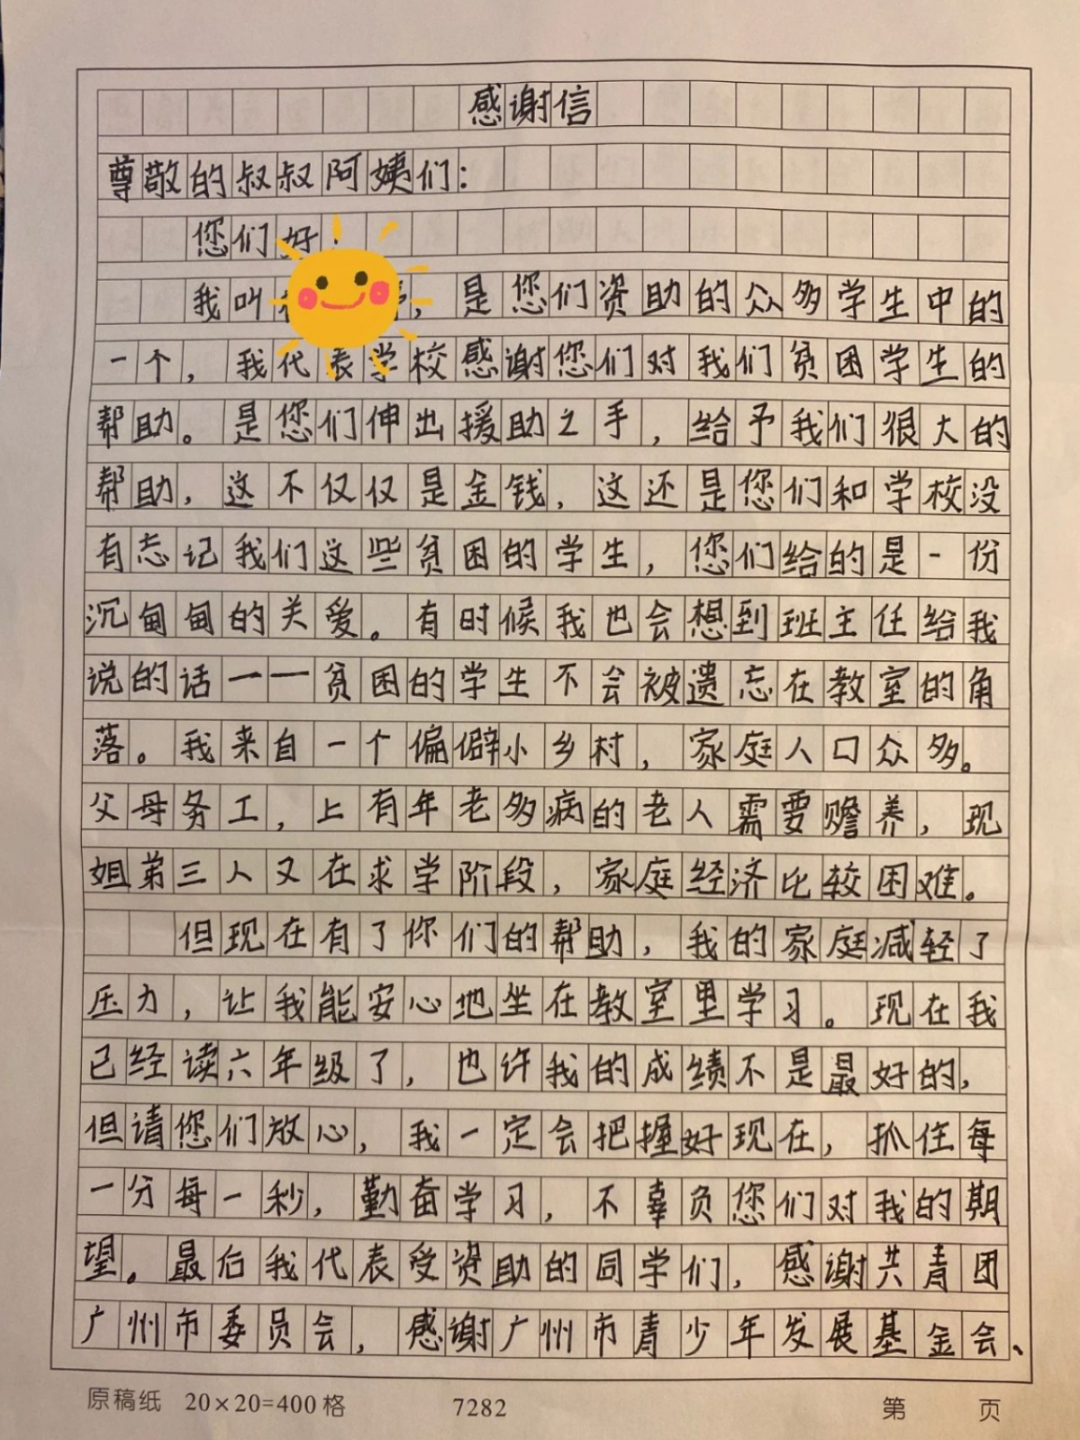 感谢信
尊敬的叔叔阿姨们：
您们好！
我叫 ，是您们资助的众多学生中的
一个，我代表学校感谢您们对我们贫困学生的
帮助。是您们伸出援助之手，给予我们很大的
帮助，这不仅仅是金钱，这还是您们和学校没
有忘记我们这些贫困的学生，您们给的是一份
沉甸甸的关爱。有时候我也会想到班主任给我
说的话——贫困的学生不会被遗忘在教室的角
落。我来自一个偏僻小乡村，家庭人口众多。
父母务工，上有年老多病的老人需要赡养，现
姐弟三人又在求学阶段，家庭经济比较困难。
但现在有了你们的帮助，我的家庭减轻了
压力，让我能安心地坐在教室里学习。现在我
已经读六年级了，也许我的成绩不是最好的，
但请您们放心，我一定会把握好现在，抓住每
一分每一秒，勤奋学习，不辜负您们对我的期
望。最后我代表受资助的同学们，感谢共青团
广州市委员会，感谢广州市青少年发展基金会、
原稿纸 20×20=400格 7282 第 页